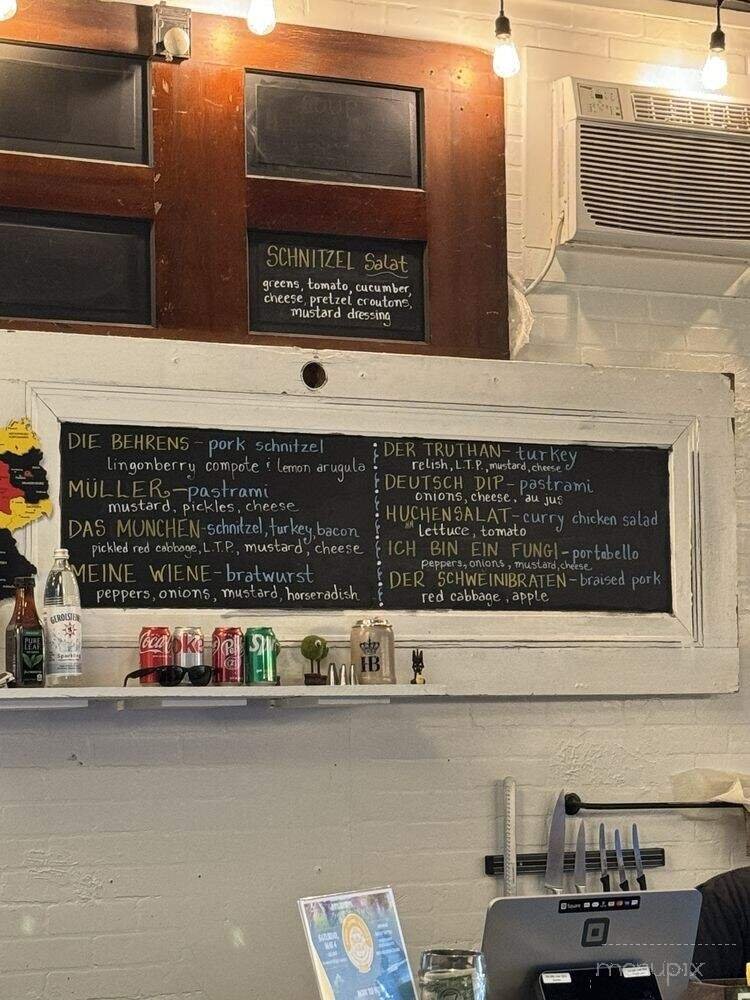 SCHNITZEL Salat
greens, tomato, cucumber,
cheese, pretzel croutons,
mustard dressing
DIE BEHRENS - pork schnitzel
lingonberry compote & lemon arugula
MÜLLER - pastrami
mustard, pickles, cheese
DAS MUNCHEN - schnitzel, turkey, bacon
pickled red cabbage, L.T.P., mustard, cheese
MEINE WIENE - bratwurst
peppers, onions, mustard, horseradish
DER TRUTHAN - turkey
relish, L.T.P., mustard, cheese
DEUTSCH DIP - pastrami
onions, cheese, au jus
HUCHENSALAT - curry chicken salad
lettuce, tomato
ICH BIN EIN FUNGI - portabello
peppers, onions, mustard, cheese
DER SCHWEINIBRATEN - braised pork
red cabbage, apple
PURE
LEAF
GEROLSTEINER
Coca
oke
HB
Square
menupix